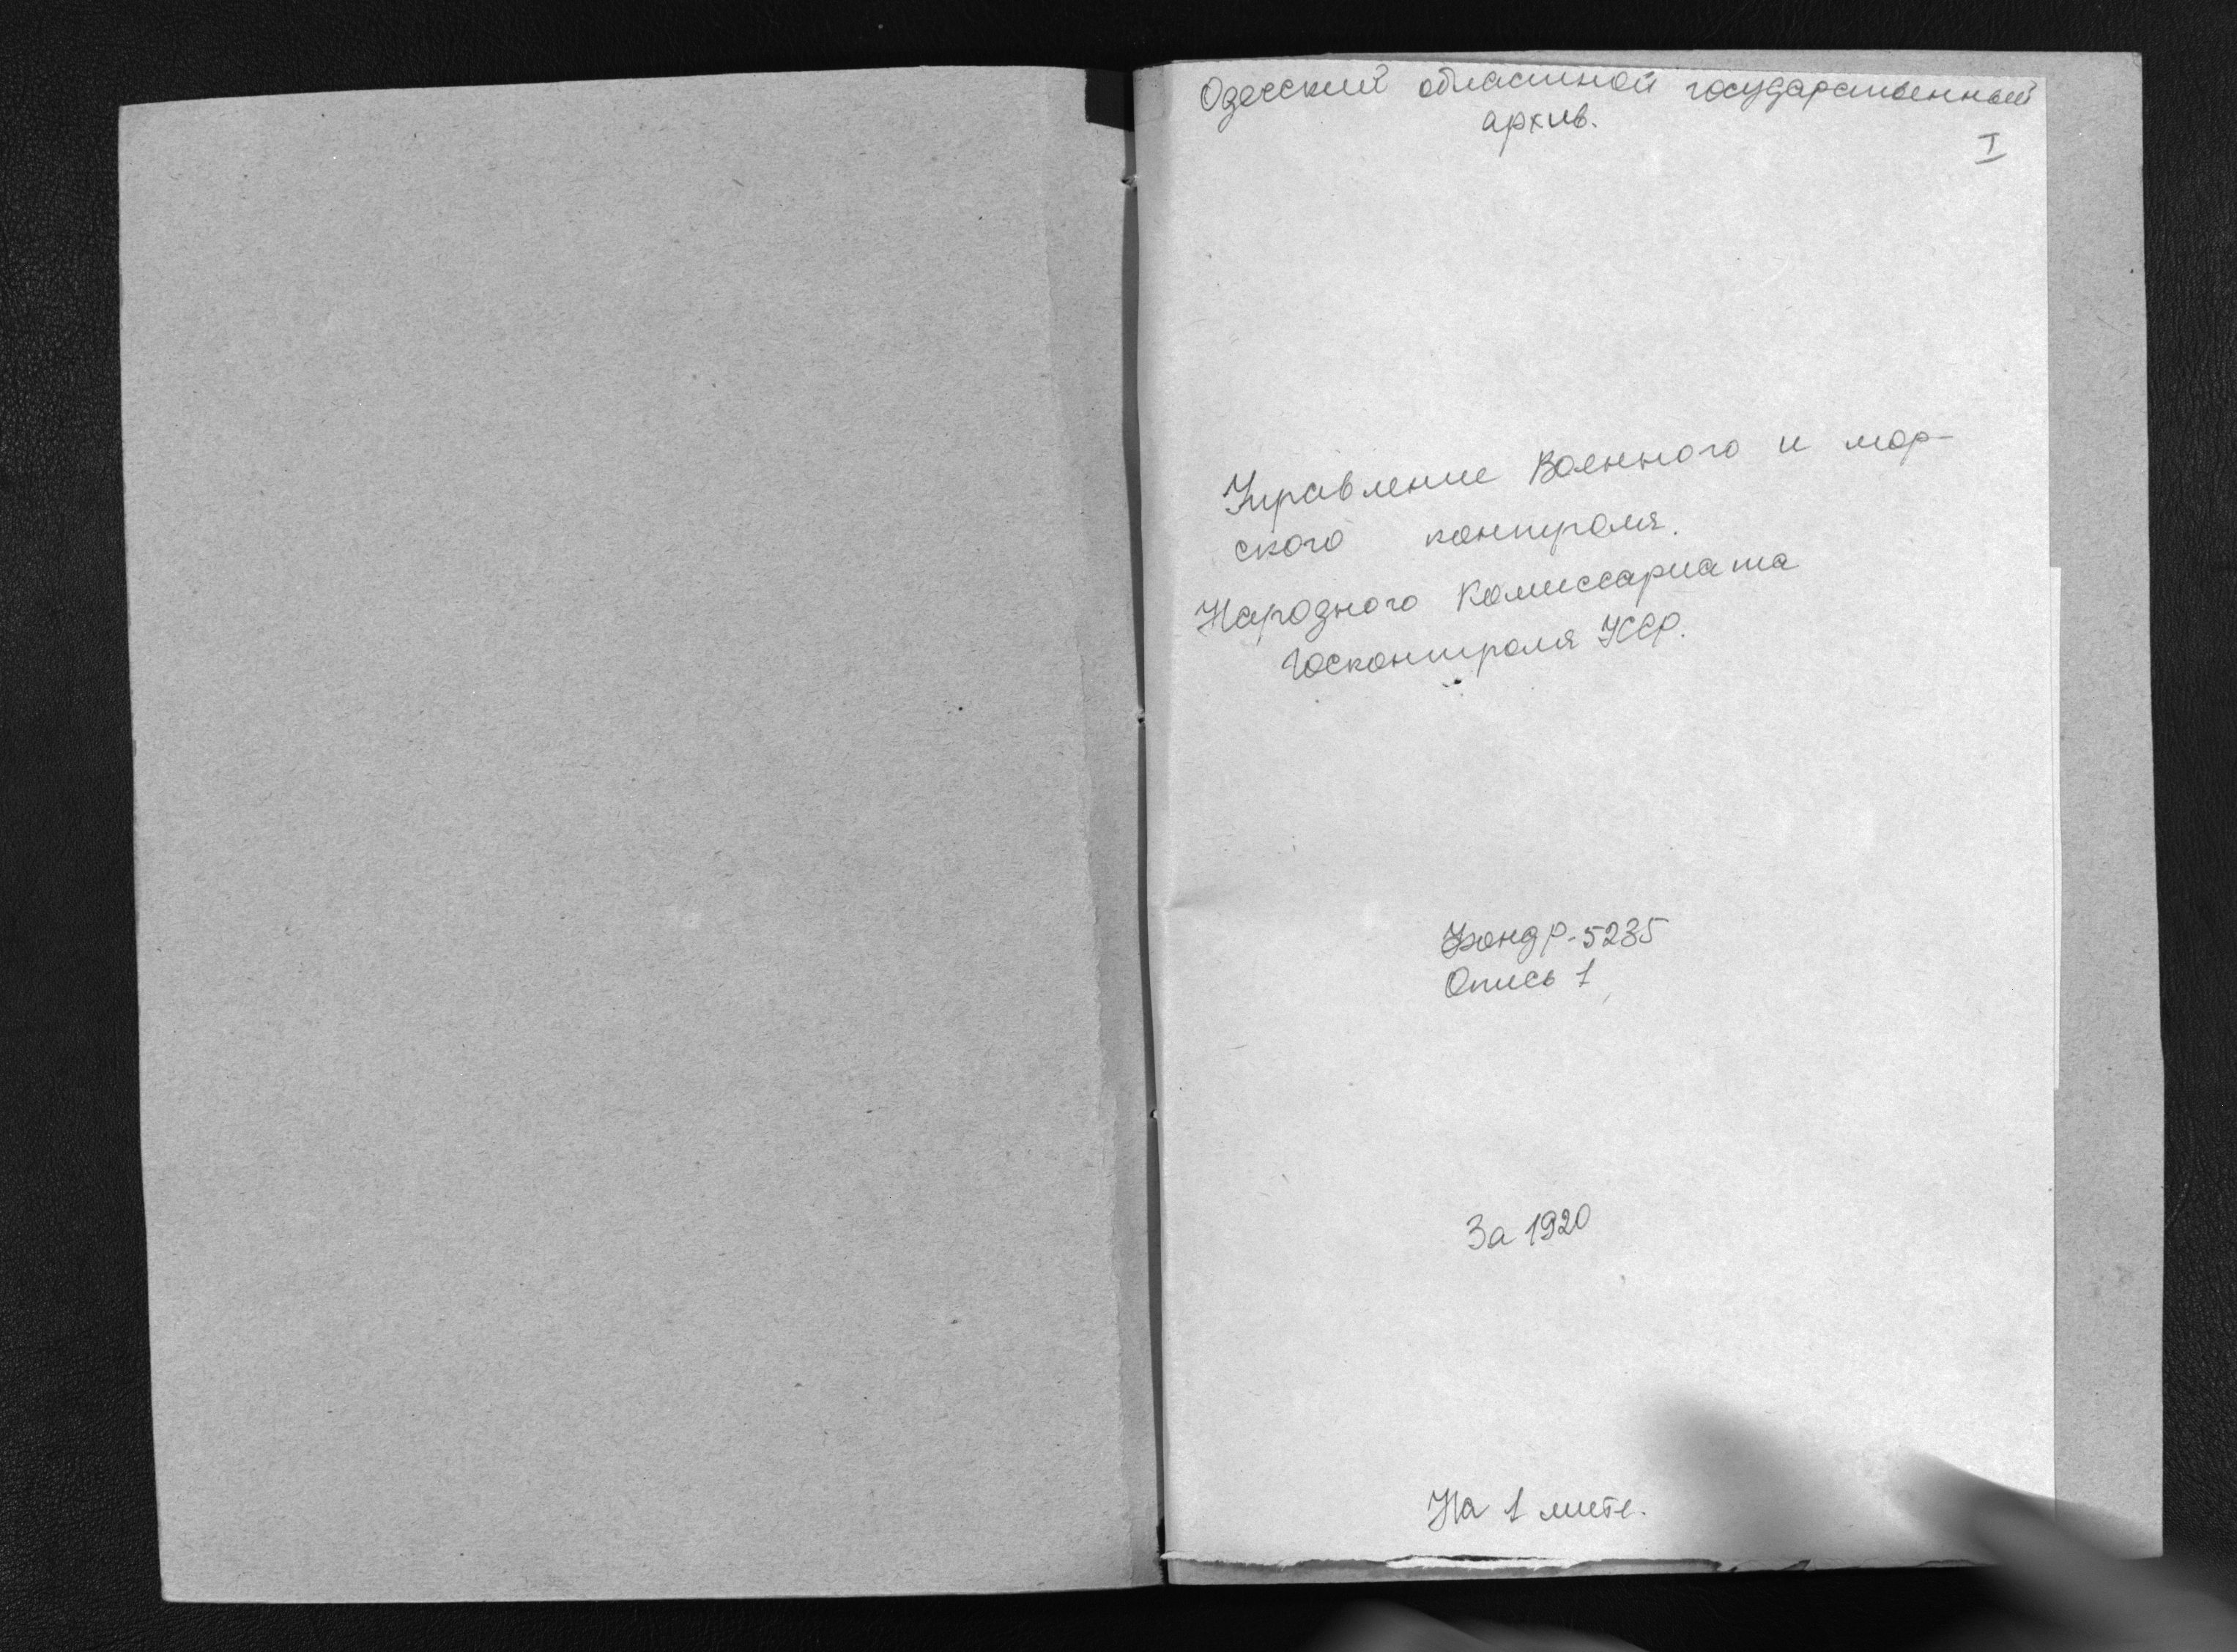 Одесский областной государственный
архив.
I
Управление Военного и мор-
ского контроля.
Народного Комиссариата
Госконтроля УССР.
Фонд Р-5235
Опись 1
За 1920
На 1 листе.